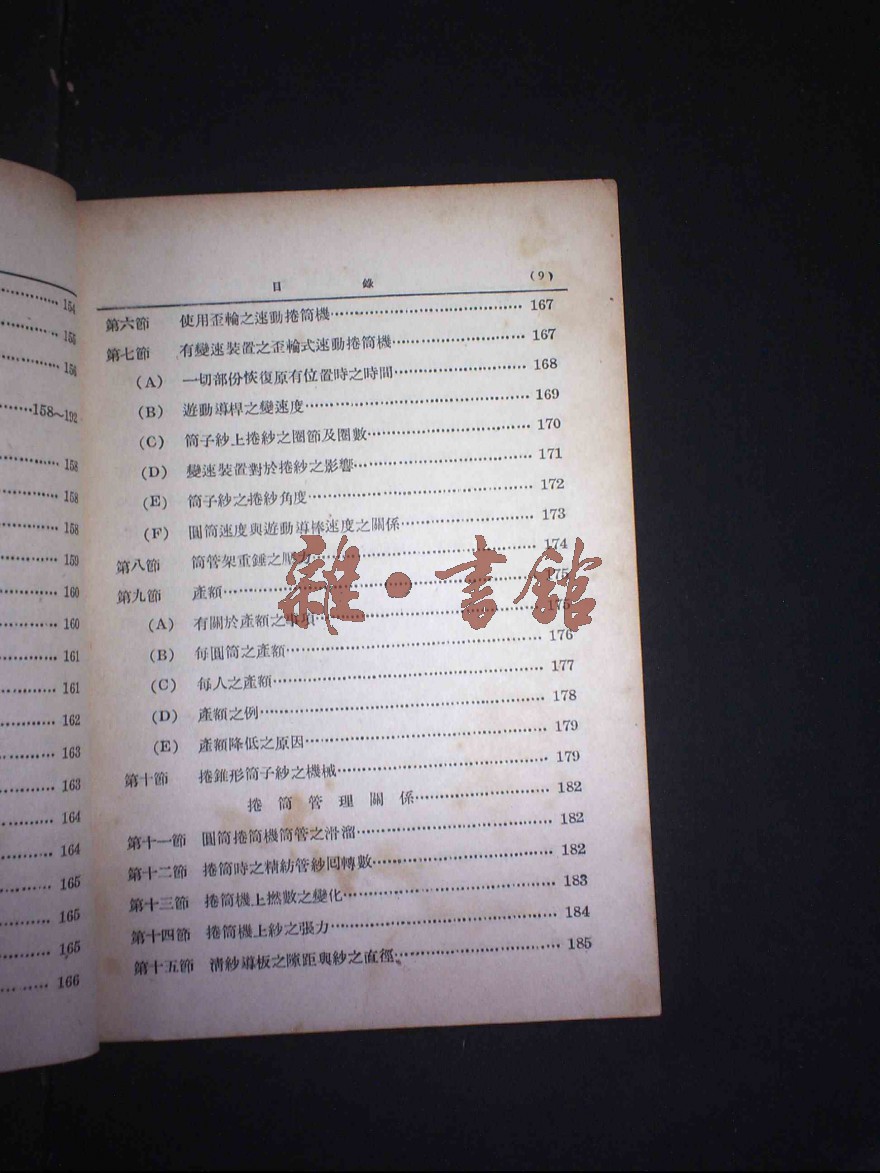 154
155
156
158～192
158
158
158
159
160
160
161
161
162
163
163
164
164
165
165
165
166
目 錄 (9)
第六節 使用歪輪之速動捲筒機 167
第七節 有變速裝置之歪輪式速動捲筒機 167
(A) 一切部份恢復原有位置時之時間 168
(B) 遊動導桿之變速度 169
(C) 筒子紗上捲紗之圈節及圈數 170
(D) 變速裝置對於捲紗之影響 171
(E) 筒子紗之捲紗角度 172
(F) 圓筒速度與遊動導棒速度之關係 173
第八節 筒管架重錘之壓力 174
第九節 產額 175
(A) 有關於產額之事項 175
(B) 每圓筒之產額 176
(C) 每人之產額 177
(D) 產額之例 178
(E) 產額降低之原因 179
第十節 捲錐形筒子紗之機械 179
捲筒管理關係 182
第十一節 圓筒捲筒機筒管之滑溜 182
第十二節 捲筒時之精紡管紗回轉數 182
第十三節 捲筒機上撚數之變化 183
第十四節 捲筒機上紗之張力 184
第十五節 清紗導板之隙距與紗之直徑 185
雜·書館